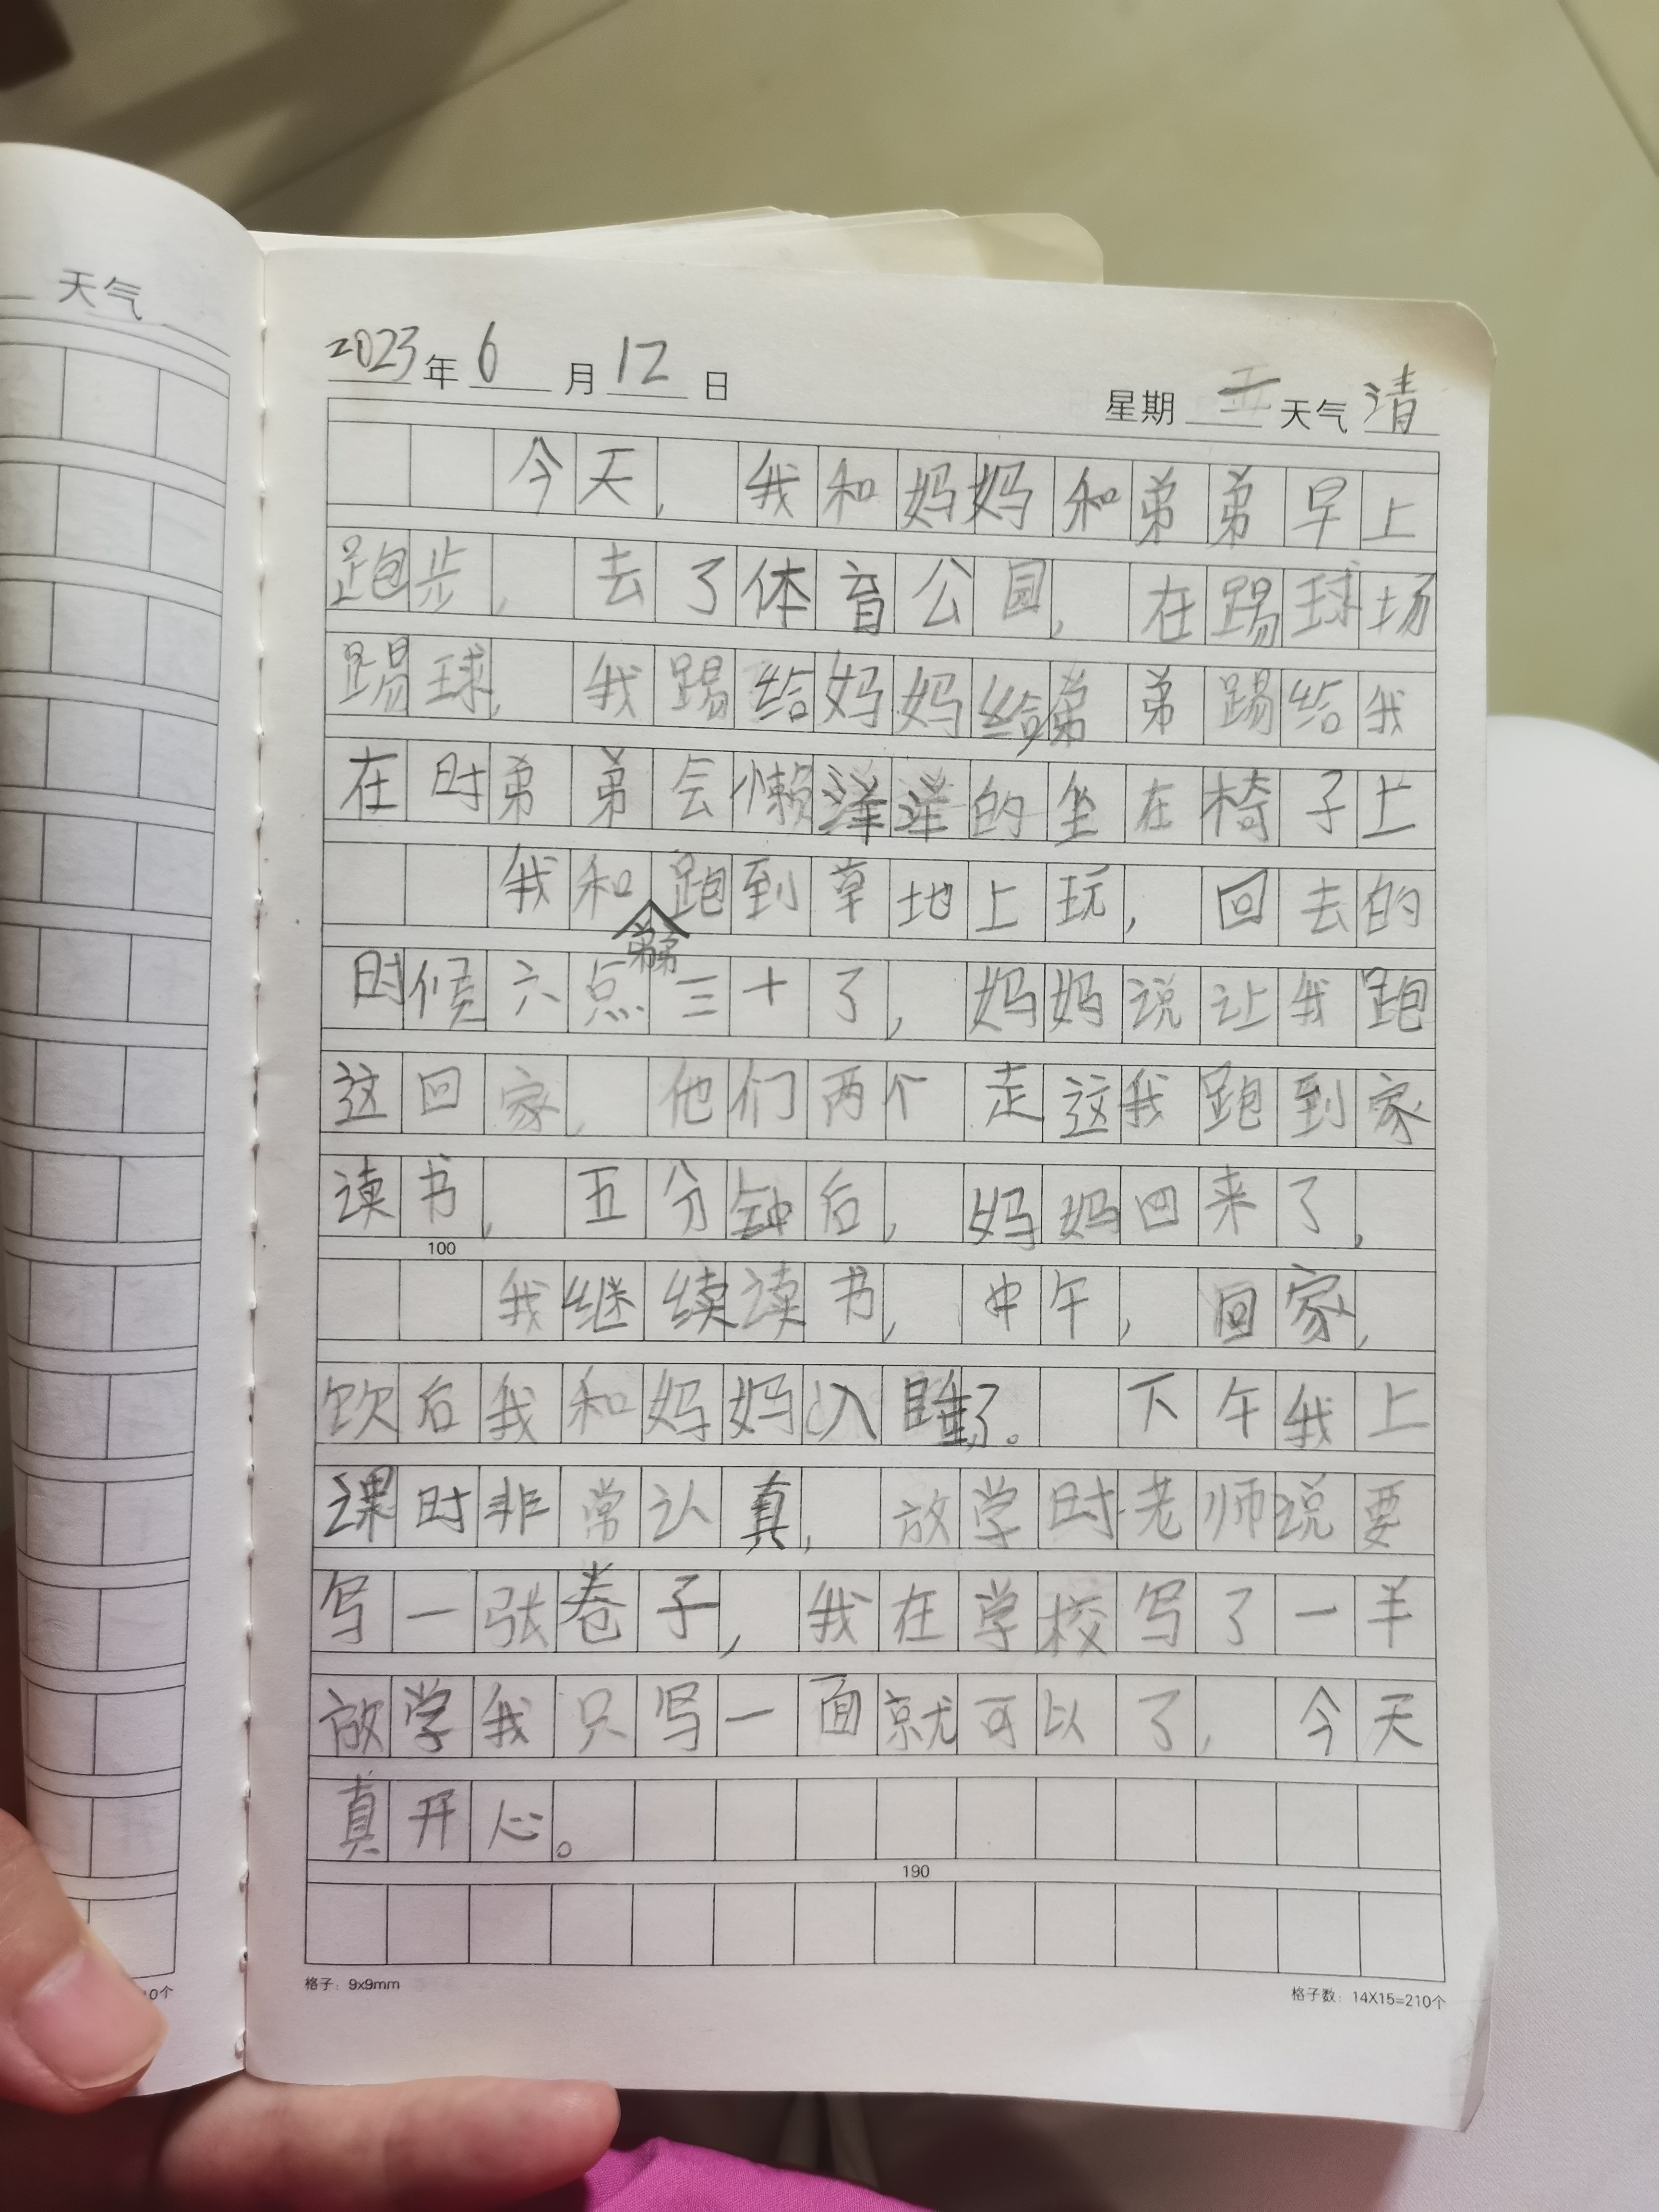 天气
2023年6月12日 星期 天气清
今天，我和妈妈和弟弟早上
跑步，去了体育公园，在踢球场
踢球，我踢给妈妈妈给弟弟踢给我
在时弟弟会懒洋洋的坐在椅子上
我和弟弟跑到草地上玩，回去的
时候六点三十了，妈妈说让我跑
这回家，他们两个走这我跑到家
读书，五分钟后，妈妈回来了，
100
我继续读书，中午，回家，
饮后我和妈妈入睡了。下午我上
课时非常认真，放学时老师说要
写一张卷子，我在学校写了一羊
放学我只写一面就可以了，今天
真开心。
190
格子：9x9mm 格子数：14X15=210个
10个